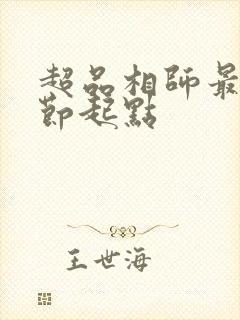 超品相師最
節起點
王世海